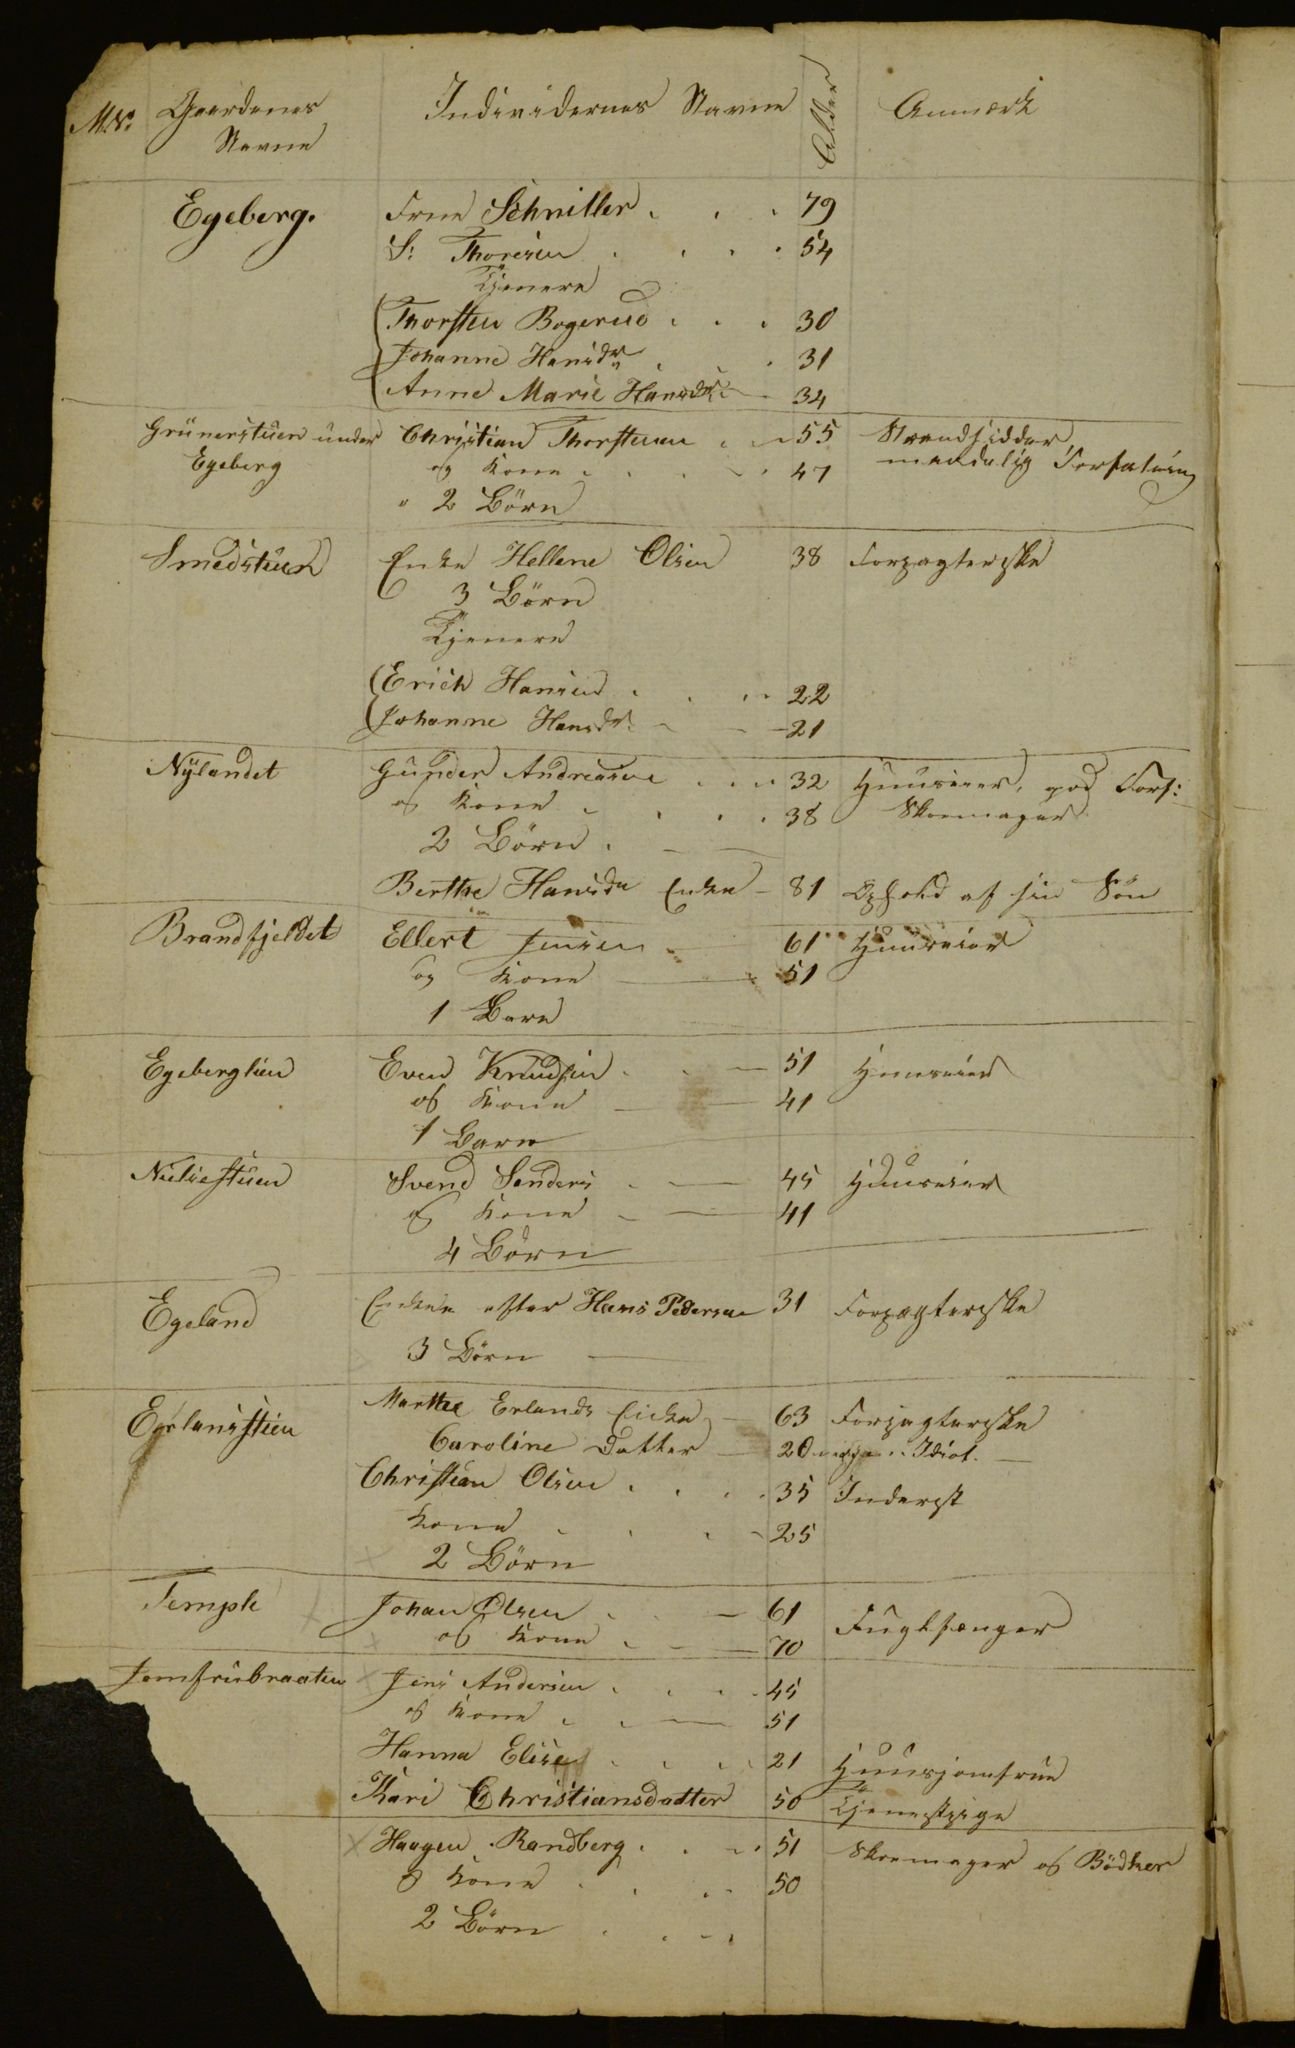 M.N: Gaardenes Navne Individernes Navne Alder Anmærk
Egeberg. Frue Schnitler 79
S: Thoresen 54
Tjenere
Thorsten Bogerud 30
Johanne Hansdr 31
Anne Marie Hansdr 34
Grünerstuen under Christian Thorstensen 55 Strandsidder
Egeberg og Kone 47 maadelig Forfatning
2 Börn
Smedstuen Enke Hellene Olsen 38 Forpagterske
3 Börn
Tjenere
Erich Hansen 22
Johanne Hansdr 21
Nÿlandet Gunder Andreasen 32 Huuseier, god Forf:
og Kone 38 Skomager
2 Börn
Berthe Hansdr Enke 81 Ophold af sin Sön
Brandfjeldet Ellert Jensen 61 Huuseier
og Kone 51
1 Barn
Egeberglien Even Knudsen 51 Huuseier
og Kone 41
1 Barn
Nielsestuen Svend Senders 45 Huuseier
og Kone 41
4 Börn
Egeland Enken efter Hans Pedersen 31 Forpagterske
3 Börn
Marthe Erlands Enke 63 Forpagterske
Caroline Datter 20 Idiot.
Christian Olsen 35 Inderst
Kone 25
2 Börn
Temple Johan Olsen 61 Fuglfænger
og Kone 70
Jomfrubraaten Jens Andersen 45
og Kone 51
Hanna Elise 21 Huusjomfrue
Kari Christiansdatter 50 Tjenestpige
Haagen Randberg 51 Skomager og Bödker
og Kone 50
2 Börn